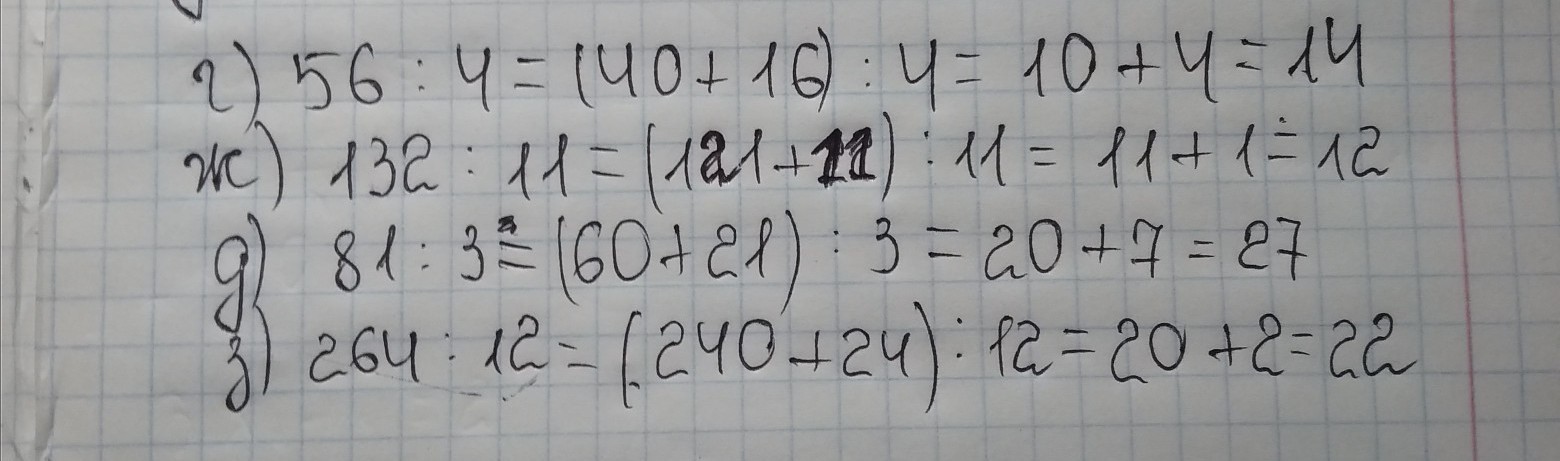 г) 56 : 4 = (40 + 16) : 4 = 10 + 4 = 14
ж) 132 : 11 = (121 + 11) : 11 = 11 + 1 = 12
д) 81 : 3 = (60 + 21) : 3 = 20 + 7 = 27
з) 264 : 12 = (240 + 24) : 12 = 20 + 2 = 22